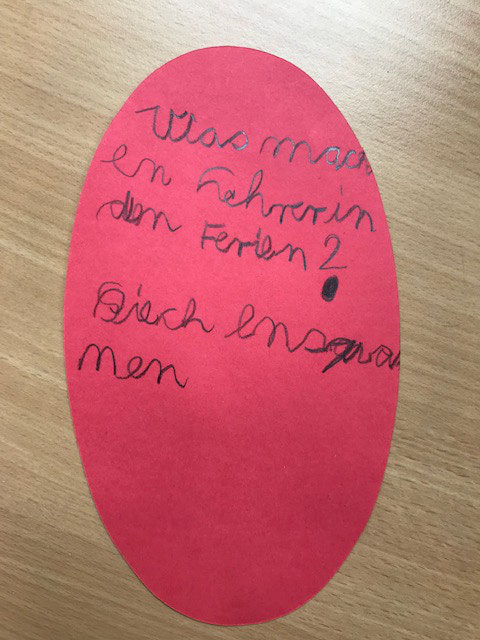 Was mach
en Lehrer in
den Ferien?
Siech
nen